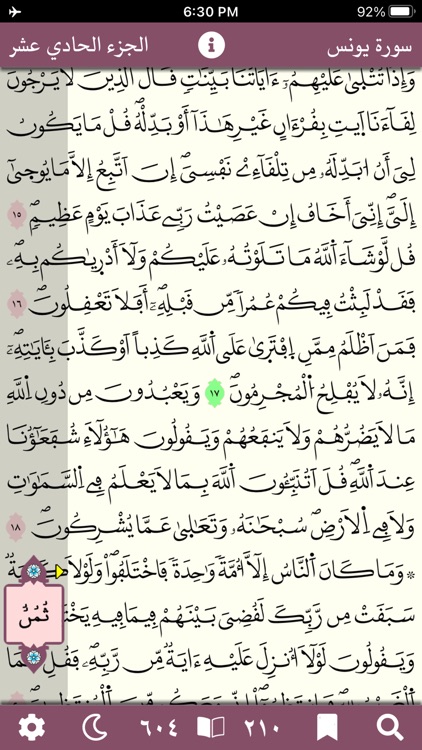 6:30 PM
92%
سورة يونس
الجزء الحادي عشر
وَإِذَا تُتْلَىٰ عَلَيْهِمُۥٓ ءَايَاتُنَا بَيِّنَٰتٖ قَالَ ٱلذِينَ لَا يَرْجُونَ
لِقَآءَنَا اَ۪يتِ بِقُرْءَانٍ غَيْرِ هَٰذَآ أَوْ بَدِّلْهُۖ قُلْ مَا يَكُونُ
لِيَ أَنُ ا۟بَدِّلَهُۥ مِن تِلْقَآءِےْ نَفْسِيَۖ إِنَ اَتَّبِعُ إِلَّا مَا يُوحَىٰٓ
إِلَيَّۖ إِنِّيَ أَخَافُ إِنْ عَصَيْتُ رَبِّے عَذَابَ يَوْمٍ عَظِيمٖۖ ١٥
قُل لَّوْ شَآءَ ٱللَّهُ مَا تَلَوْتُهُۥ عَلَيْكُمْ وَلَآ أَدْر۪يٰكُم بِهِۦۖ
فَقَدْ لَبِثْتُ فِيكُمْ عُمُراٗ مِّن قَبْلِهِۦٓۖ أَفَلَا تَعْقِلُونَۖ ١٦
فَمَنَ اَظْلَمُ مِمَّنِ اِ۪فْتَر۪ىٰ عَلَى ٱللَّهِ كَذِباً اَوْ كَذَّبَ بِـَٔايَٰتِهِۦٓۖ
إِنَّهُۥ لَا يُفْلِحُ اُ۬لْمُجْرِمُونَۖ ١٧ وَيَعْبُدُونَ مِن دُونِ اِ۬للَّهِ
مَا لَا يَضُرُّهُمْ وَلَا يَنفَعُهُمْ وَيَقُولُونَ هَٰٓؤُلَآءِ شُفَعَٰٓؤُنَا
عِندَ اَ۬للَّهِۖ قُلَ اَتُنَبِّـُٔونَ اَ۬للَّهَ بِمَا لَا يَعْلَمُ فِے اِ۬لسَّمَٰوَٰتِ
وَلَا فِے اِ۬لَارْضِۖ سُبْحَٰنَهُۥ وَتَعَٰل۪ىٰ عَمَّا يُشْرِكُونَۖ ١٨
۞ وَمَا كَانَ اَ۬لنَّاسُ إِلَّآ أُمَّةٗ وَٰحِدَةٗ فَاخْتَلَفُواْۖ وَلَوْلَا
سَبَقَتْ مِن رَّبِّكَ لَقُضِيَ بَيْنَهُمْ فِيمَا فِيهِ
ثُمُنٌ
وَيَقُولُونَ لَوْلَآ أُنزِلَ عَلَيْهِ ءَايَةٞ مِّن رَّبِّهِۦۖ فَقُلِ
٦٠٤
٢١٠